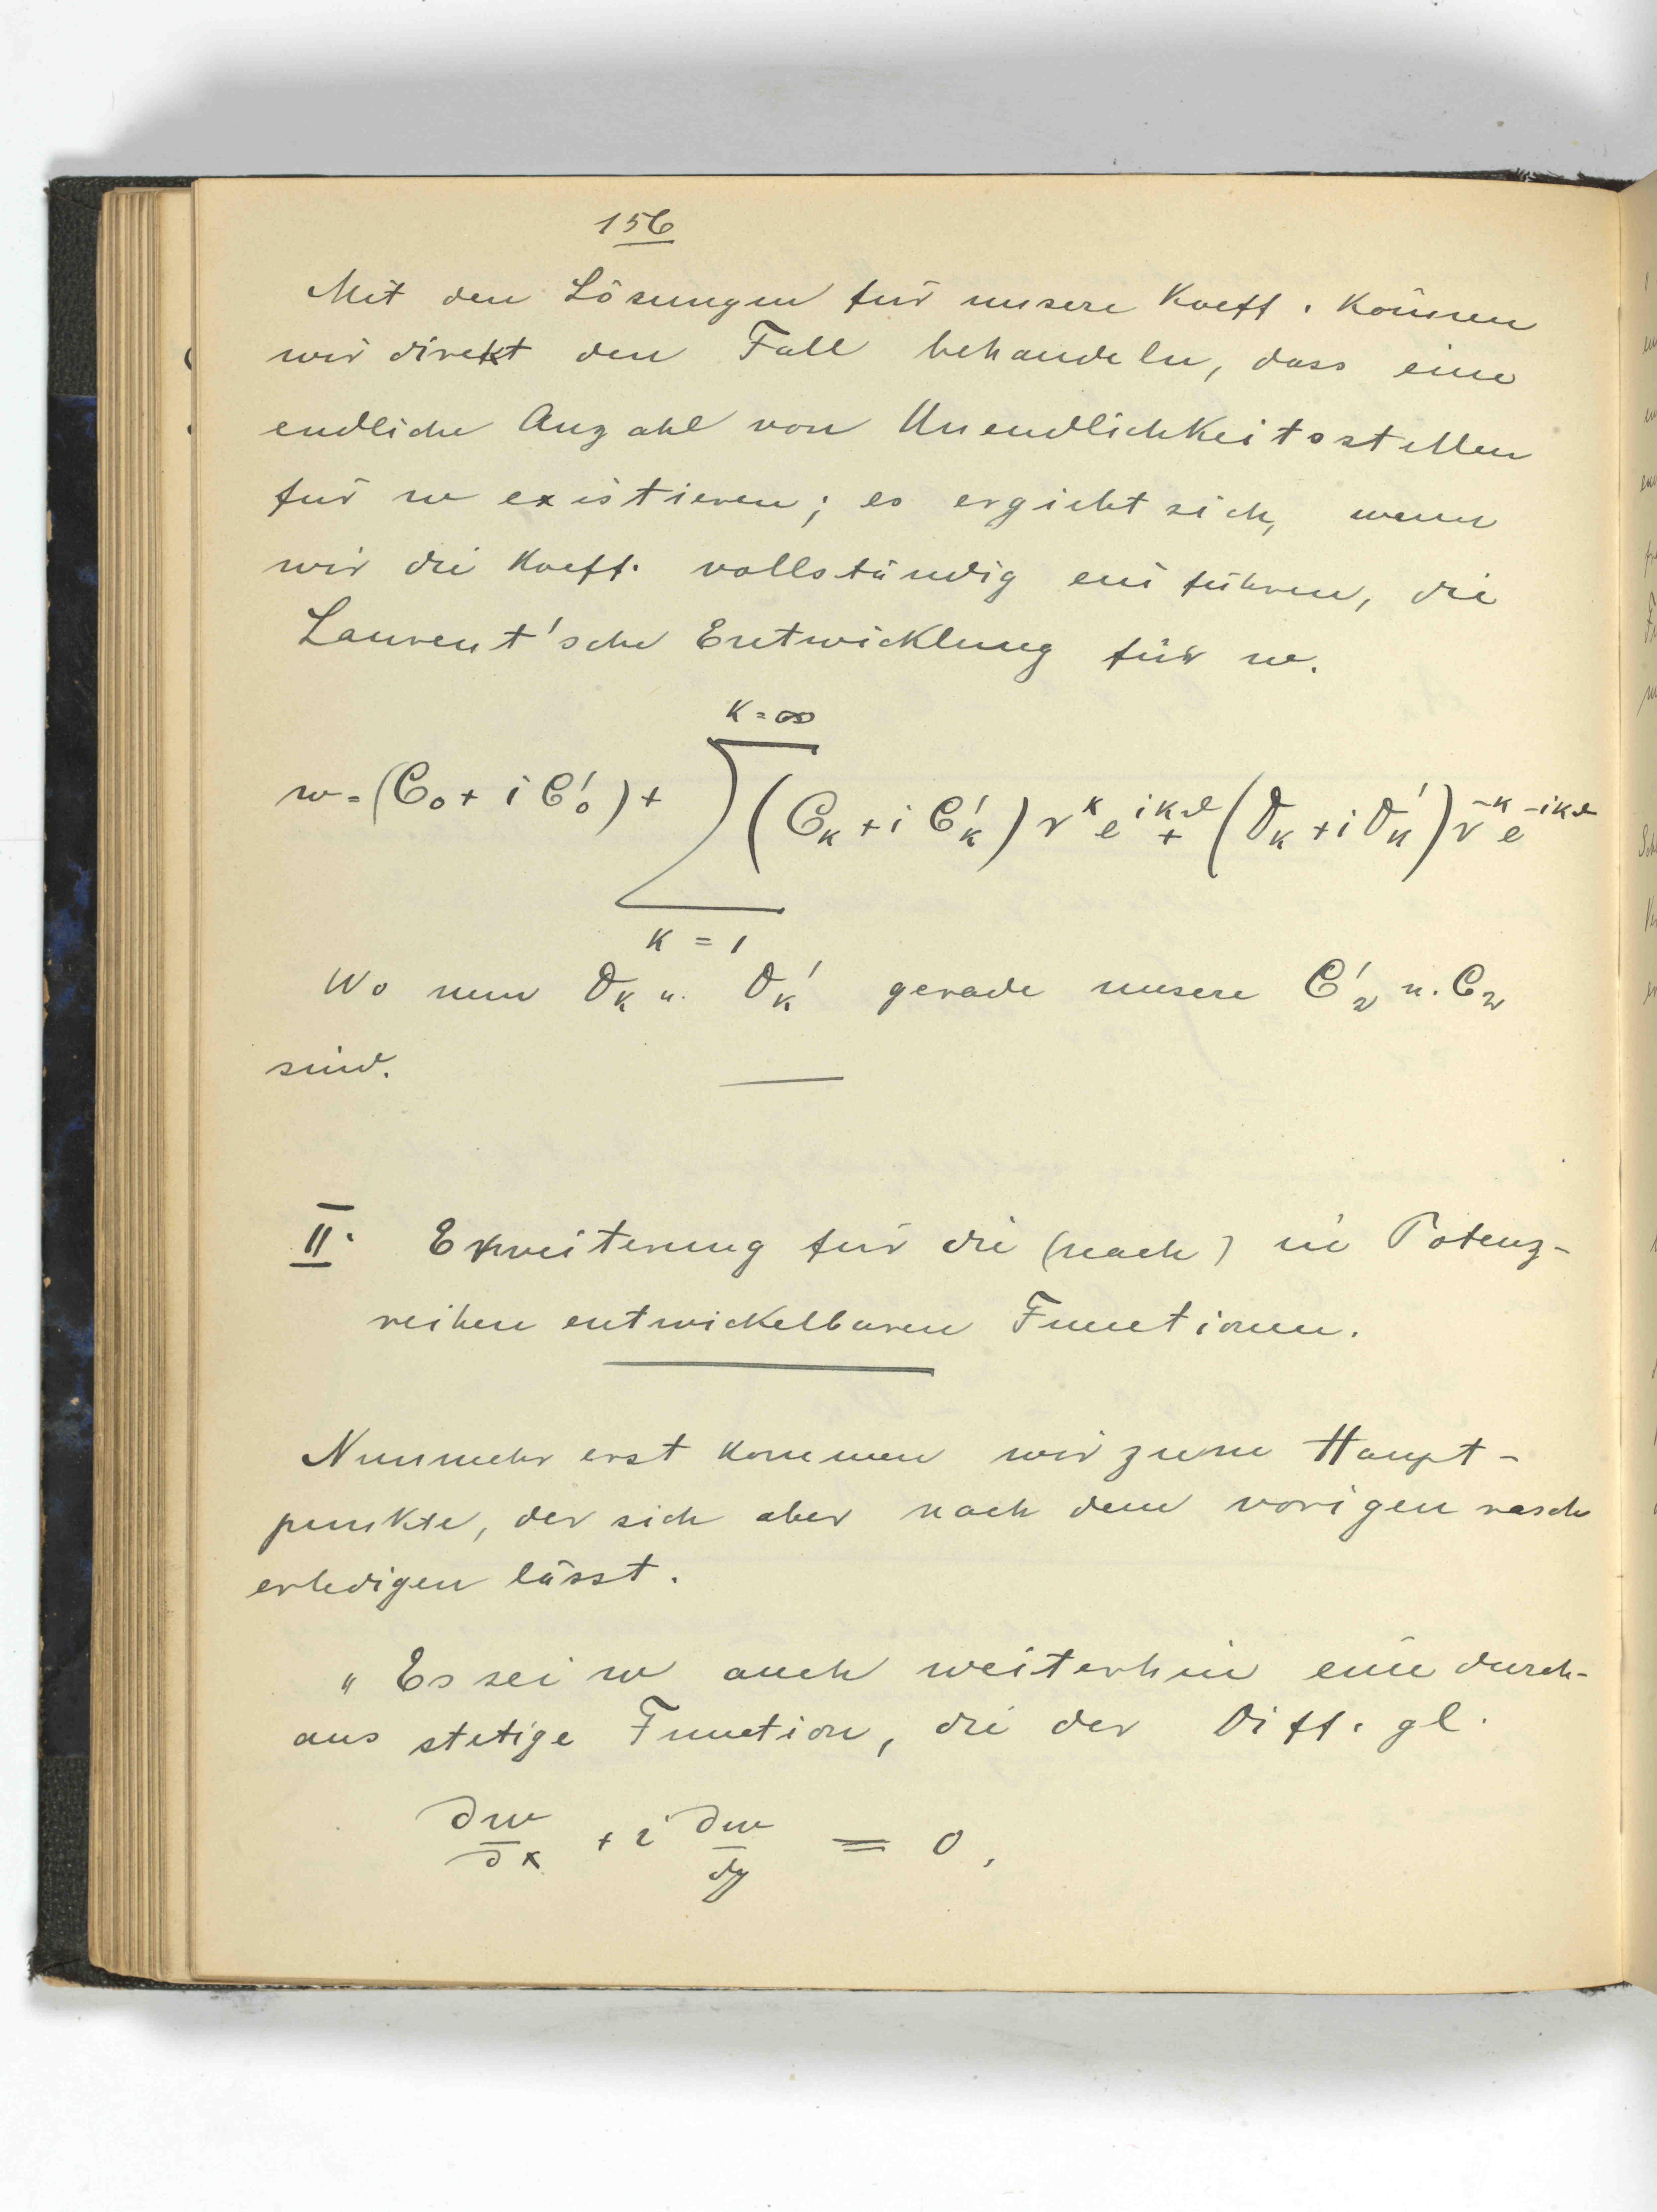 156
Mit den Lösungen für unsere Koeff. können
wir direkt den Fall behandeln, dass eine
endliche Anzahl von Unendlichkeitsstellen
für w existieren; es ergiebt sich, wenn
wir die Koeff. vollständig einführen, die
Laurent'sche Entwicklung für w.
K = ∞
w = (C₀ + i C₀′) + ∑ (C_k + i C_k′) r^k e^{ikϑ} + (D_k + i D_k′) r^{-k} e^{-ikϑ}
K = 1
Wo nun D_k u. D_k′ gerade unsere C₂′ u. C₂
sind.
II. Erweiterung für die (nach) in Potenz-
reihen entwickelbaren Functionen.
Nunmehr erst kommen wir zum Haupt-
punkte, der sich aber nach dem vorigen rasch
erledigen lässt.
„ Es sei w auch weiterhin eine durch-
aus stetige Function, die der Diff. gl.
∂w/∂x + i ∂w/∂y = 0,